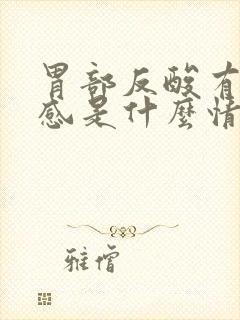 胃部反酸有
感是什麼情
雅僧